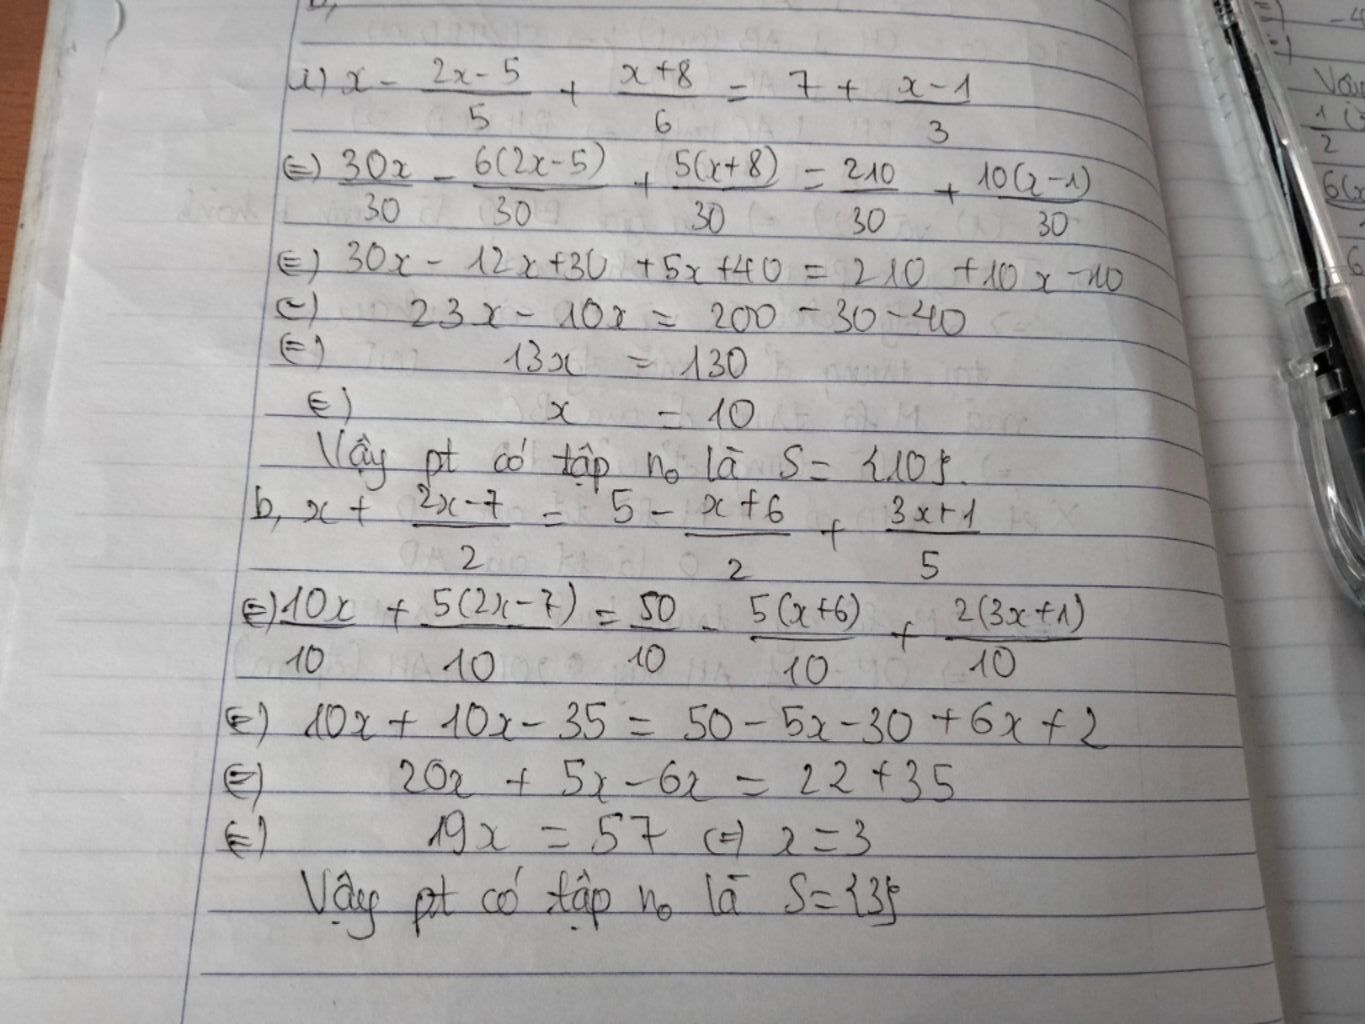 a) x - (2x-5)/5 + (x+8)/6 = 7 + (x-1)/3
(=) 30x/30 - 6(2x-5)/30 + 5(x+8)/30 = 210/30 + 10(x-1)/30
(=) 30x - 12x+30 +5x+40 = 210 +10x-10
(=) 23x - 10x = 200 - 30 - 40
(=) 13x = 130
(=) x = 10
Vậy pt có tập no là S = {10}.
b, x + (2x-7)/2 = 5 - (x+6)/2 + (3x+1)/5
(=) 10x/10 + 5(2x-7)/10 = 50/10 - 5(x+6)/10 + 2(3x+1)/10
(=) 10x + 10x - 35 = 50 - 5x - 30 + 6x + 2
(=) 20x + 5x - 6x = 22 + 35
(=) 19x = 57 (=) x = 3
Vậy pt có tập no là S = {3}